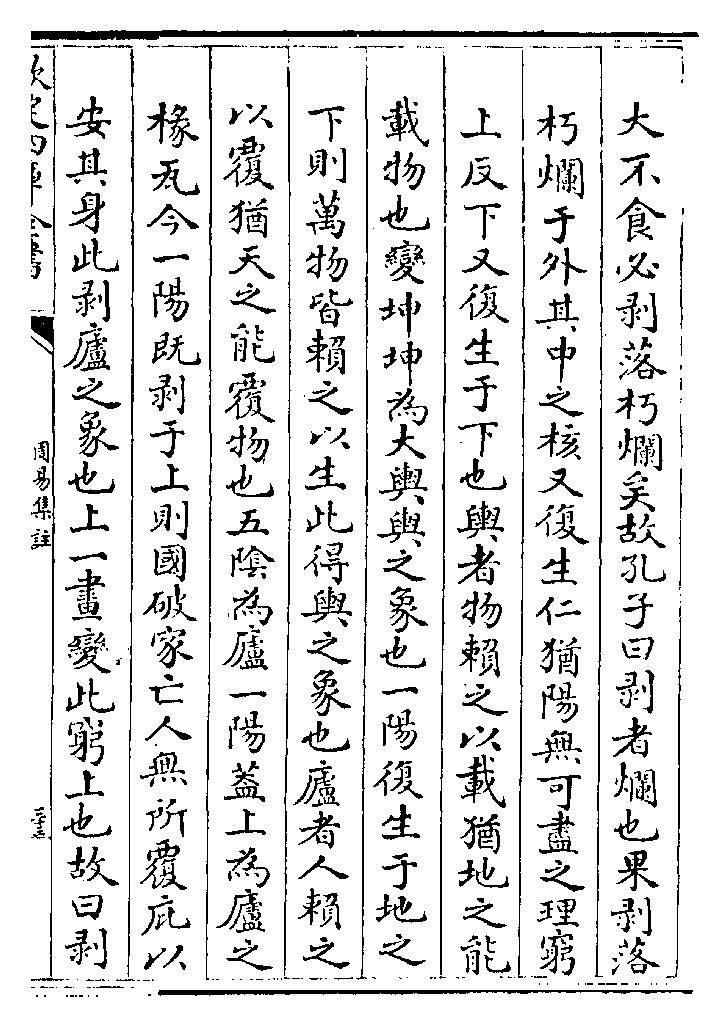 大不食必剥落朽爛矣故孔子曰剥者爛也果剥落
朽爛于外其中之核又復生仁猶陽無可盡之理窮
上反下又復生于下也輿者物賴之以載猶地之能
載物也變坤坤為大輿輿之象也一陽復生于地之
下則萬物皆賴之以生此得輿之象也廬者人賴之
以覆猶天之能覆物也五陰為廬一陽蓋上為廬之
椽瓦今一陽既剥于上則國破家亡人無所覆庇以
安其身此剥廬之象也上一畫變此窮上也故曰剥
欽定四庫全書
周易集註